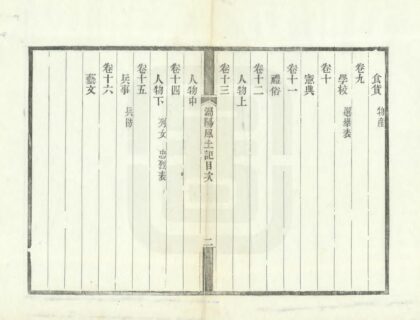 食貨 物產
卷九
學校 選舉表
卷十
憲典
卷十一
禮俗
卷十二
人物上
卷十三
渦陽風土記目次
二
人物中
卷十四
人物下 列女 忠烈表
卷十五
兵事 兵防
卷十六
藝文